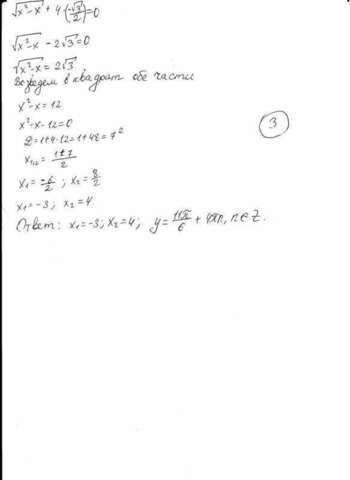 √(x²-x) + 4·(-√3/2)=0
√(x²-x) - 2√3=0
√(x²-x) = 2√3
Возведем в квадрат обе части
x²-x=12
x²-x-12=0
D=1+4·12=1+48=7²
x₁,₂= (1±7)/2
x₁= -6/2 ; x₂= 8/2
x₁=-3; x₂=4
Ответ: x₁=-3; x₂=4; y= 11π/6 + 4πn, n∈Z.
3